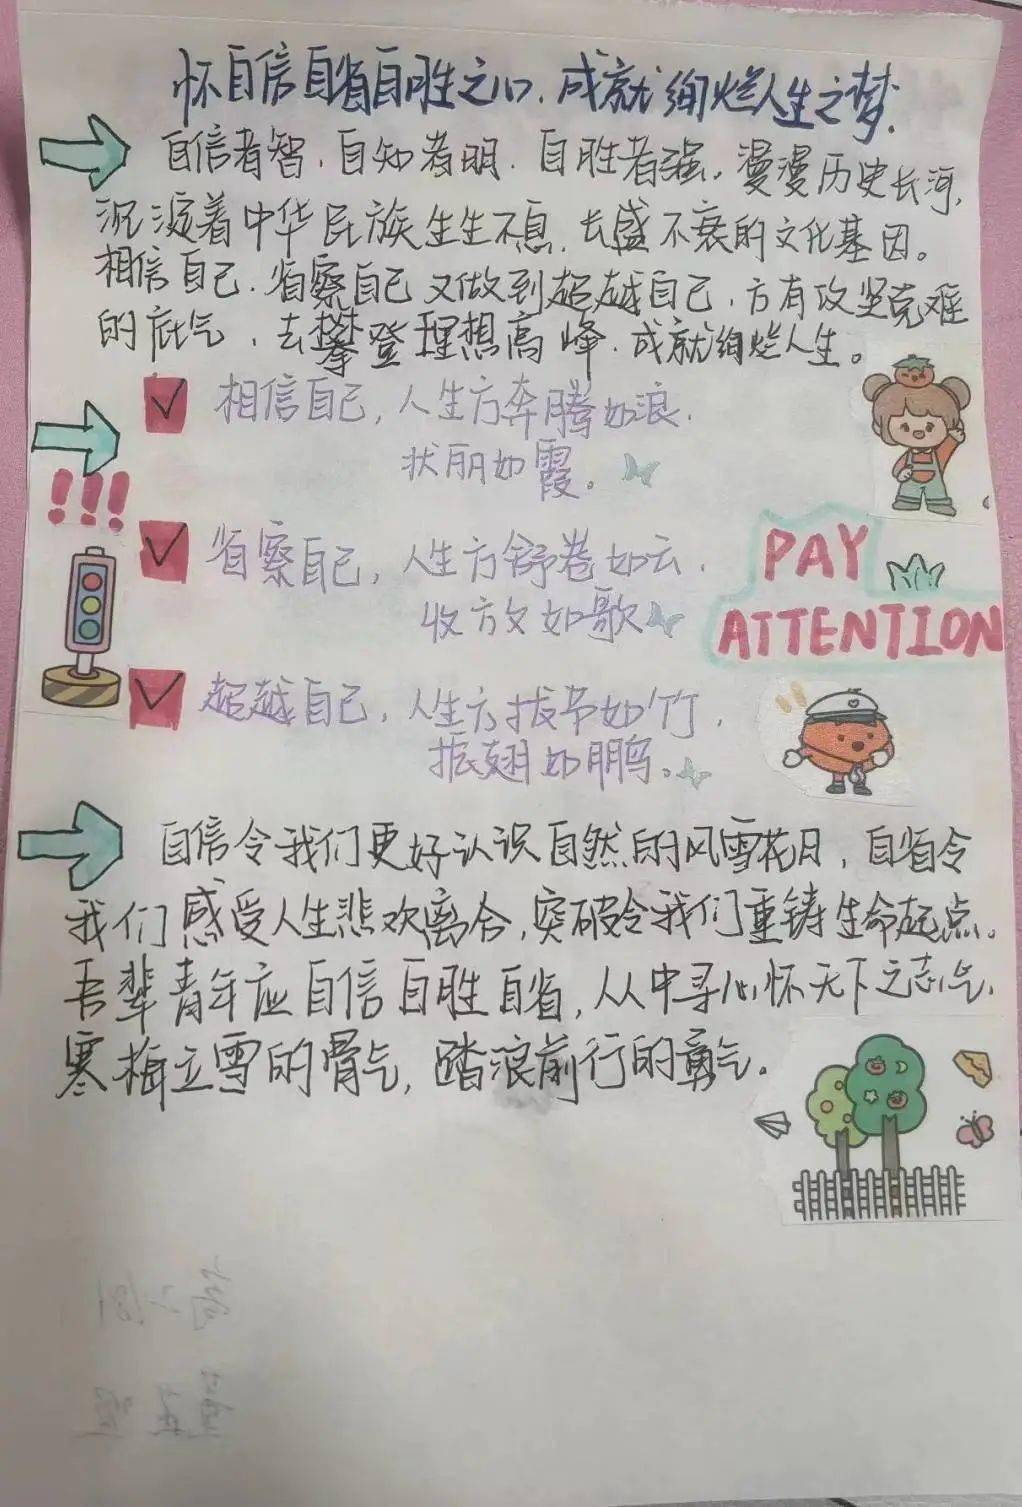 怀自信自省自胜之心,成就绚烂人生之梦.
自信者智,自知者明,自胜者强。漫漫历史长河,
沉淀着中华民族生生不息,长盛不衰的文化基因。
相信自己,省察自己又做到超越自己,方有攻坚克难
的底气,去攀登理想高峰,成就绚烂人生。
相信自己,人生方奔腾如浪,
状丽如霞。
!!!
省察自己,人生方舒卷如云,
收放如歌
PAY
ATTENTION
超越自己,人生方拔节如竹,
振翅如鹏。
自信令我们更好认识自然的风雪花月,自省令
我们感受人生悲欢离合,突破令我们重铸生命起点。
吾辈青年应自信自胜自省,从中寻心怀天下之志气,
寒梅立雪的骨气,踏浪前行的勇气。